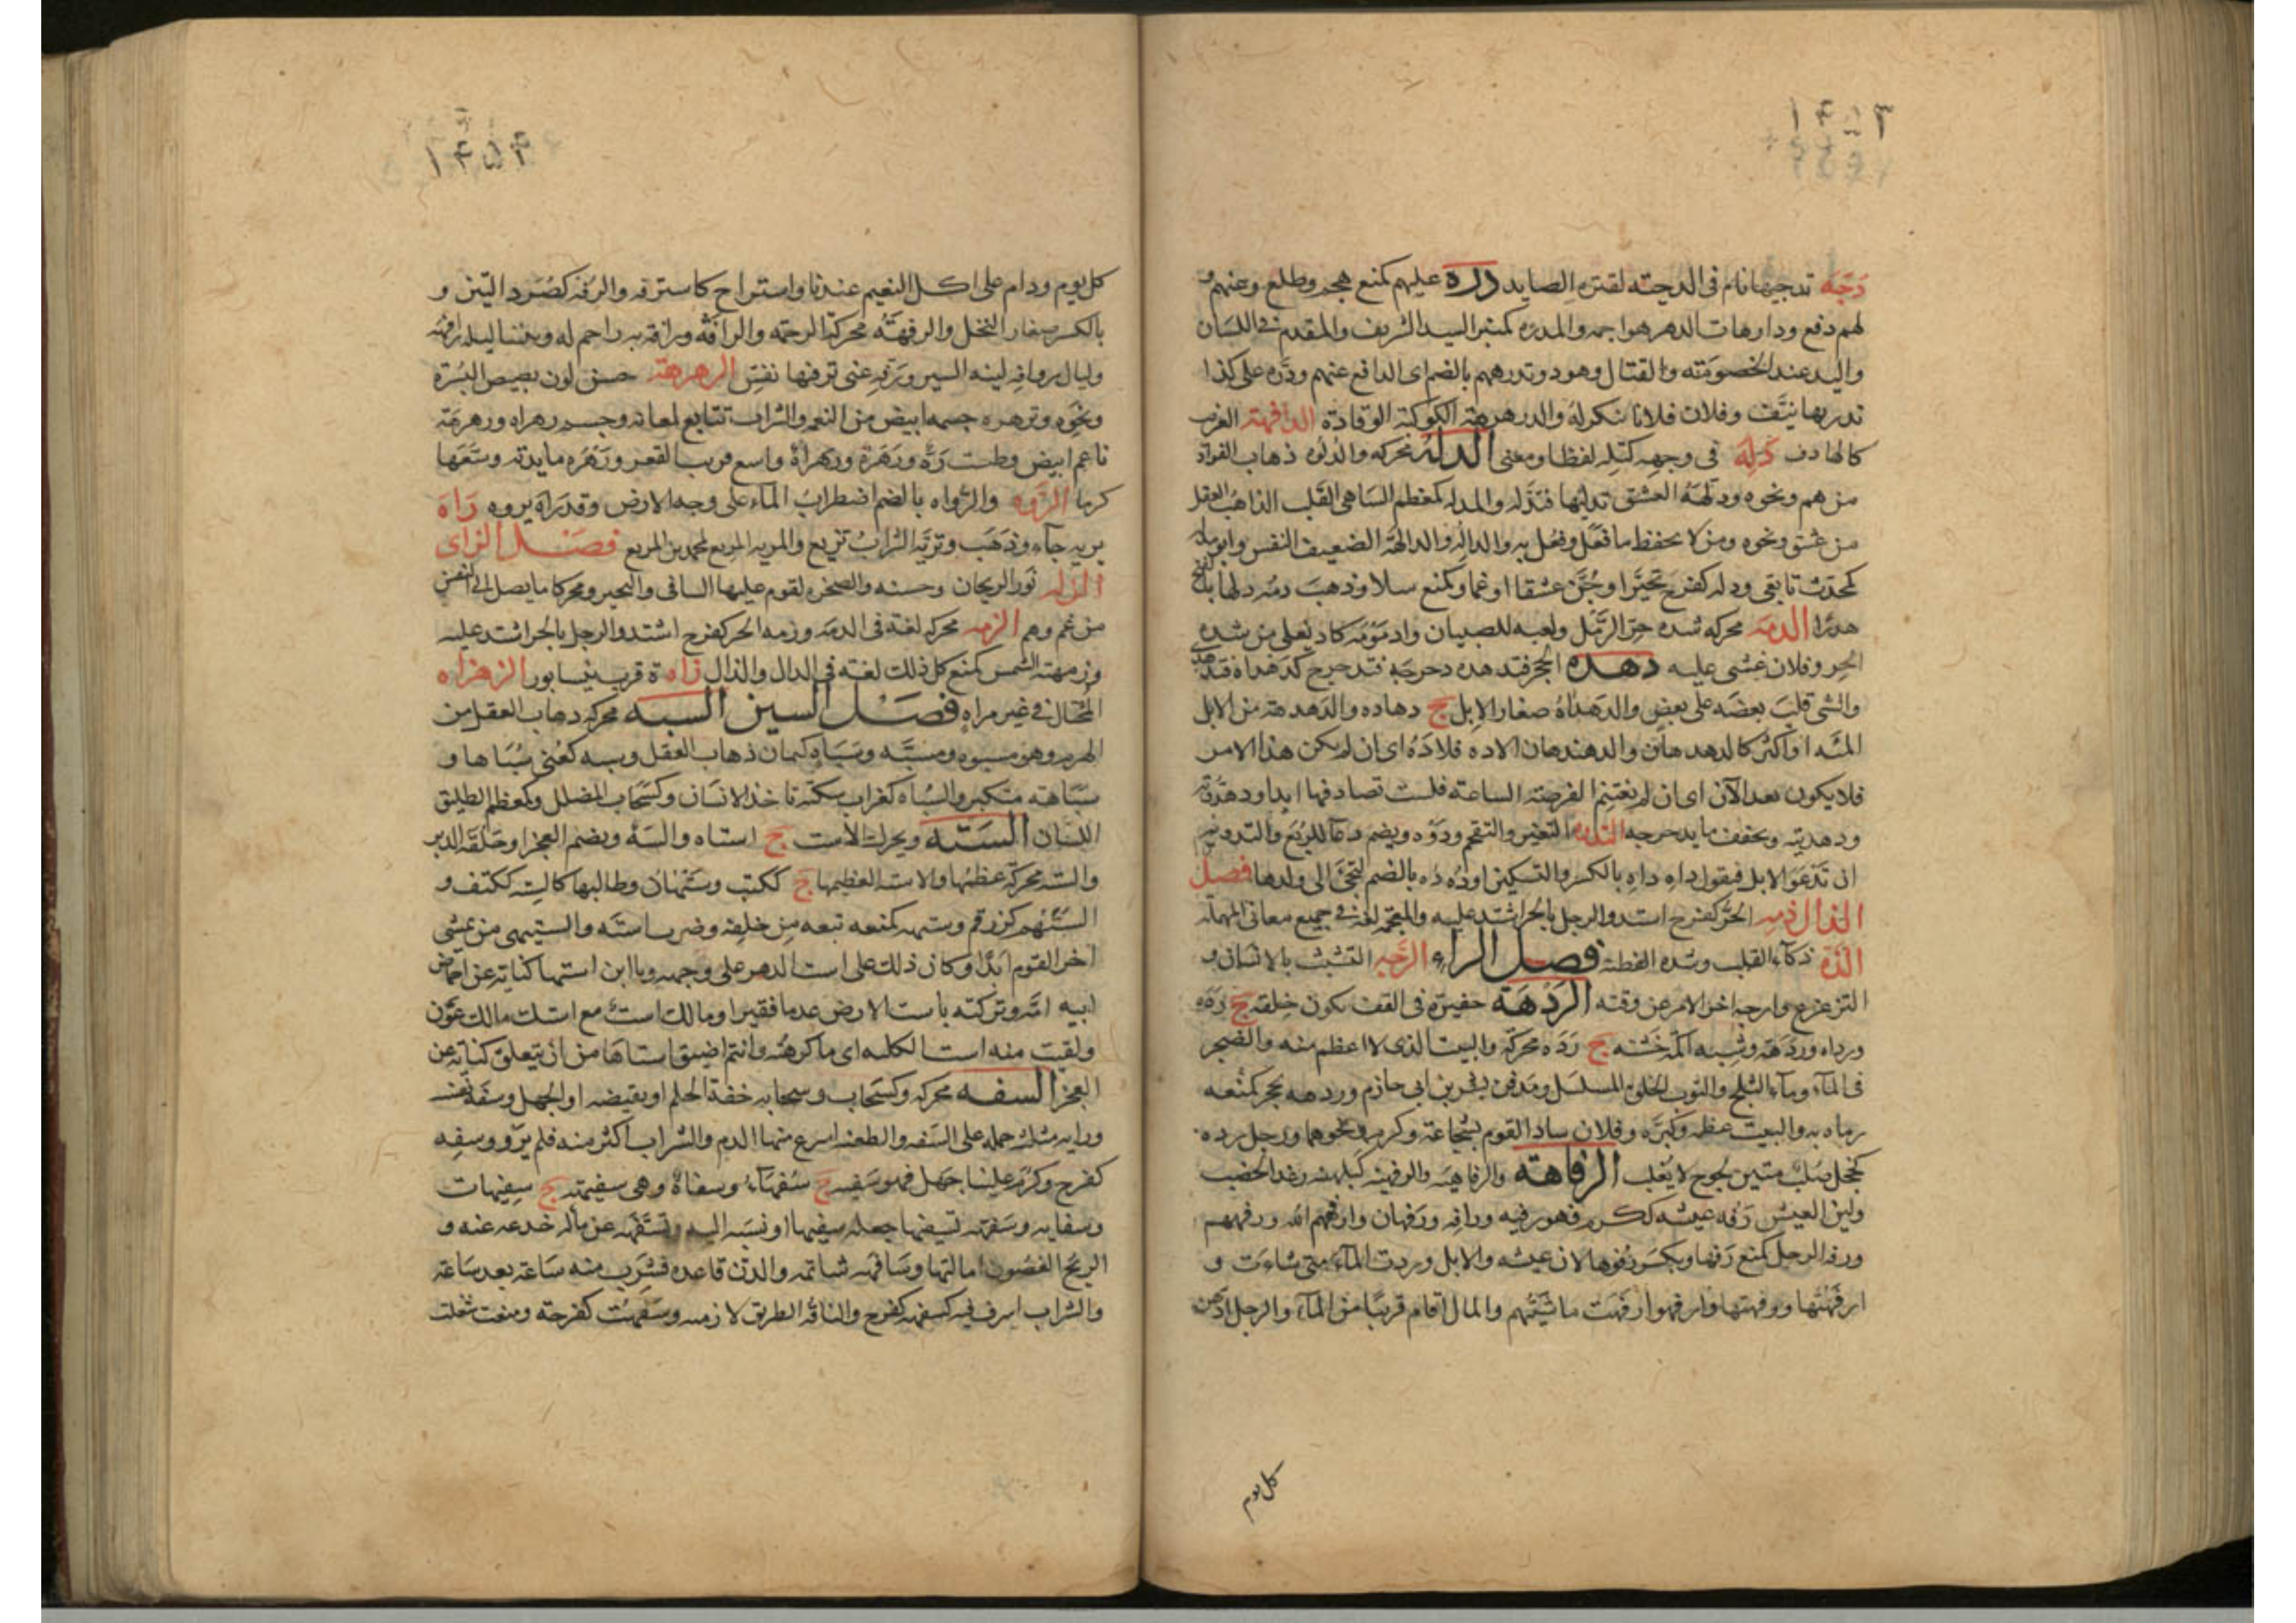 دَجَّهَ تدجيها نام فى الدجيّه لقتره الصايد دره عليهم كمنع هجم وطلع وعنهم و
لهم دفع ودارهات الدهر هواجمه والمدره كمنبر السيد الشريف والمقدم فى اللسان
واليد عند الخصومته والقتال وهو ذو تدرههم بالضم اى الدافع عنهم ودَّره على كذا
تدريها نيَّف وفلان فلانا تنكر له والدرهرهته الكوكبة الوقادة الدافهة الغريب
كالهادف دَلِه فى وجهه كتله لفظا ومعنى الدله محركه والدلوه ذهاب الفواد
من هم ونحوه ودلهه العشق تدليها فتدله والمدله كمعظم الساهى القلب الذاهب العقل
من عشق ونحوه ومن لا يحفظ ما فَعَل وفُعل به والداله والدالهة الضعيف النفس وابو مدله
كمحدث تابعى ودله كفرح تحيَّر او جُنَّ عشقا او غما وكمنع سلا وذهب دمه دلها بالفتح
هدرًا الدمه محركه شده حرّ الرَّمل ولعبه للصبيان وادمَوْمَه كاد يَغلى من شده
الحر وفلان غشى عليه دهده الحجر فتدهده دحرجه فتدحرج كدهداه فتدهدى
والشى قلب بعضه على بعض والدهداه صغار الابل ج دهاده والدهدهته من الابل
المئه او اكثر كالدهدهان والدهيدهان الاده فلا دَه اى ان لم يكن هذا الامر
فلا يكون بعد الآن اى ان لم تغتنم الفرصته الساعته فلست تصادفها ابدا ودهدوته
ودهديته ويخفف ما يدحرجه التدوه التغير والتقحم ودَوْه ويضم دعآ للرُبَع والتدويه
ان تَدْعوَ الابل فيقول داهِ داهِ بالكسر والتسكين او دُه دُه بالضم لتجئ الى ولدها فصل
الذال ذمه الحرّ كفرح اشتد والرجل بالحر اشتد عليه والمعجمه لغه فى جميع معانى المهمله
الذَّه ذكآء القلب وشده الفطنه فصل الراء الرَّجه التشبث بالانسان و
التزعزع وارجه اخر الامر عن وقته الرَدهَة حفيرة فى القف تكون خلقه ج رَدْه
ورداه ورَدَهة وشبه اكمه خشنه ج رَدَه محركه والبيت الذى لا اعظم منه والضجر
فى المآء ومآء الثلج والثوب الخلق المسلسل ومدفن بشر بن ابى حازم وردهه بحجر كمنعه
رماه به والبيت عظمه وكبَّره وفلان ساد القوم بشجاعة وكرم ونحوهما ورجل رده
كخجل صلب متين لجوج لا يُغلب الرفاهته والرفاهيه والرفهنيه كبلهنيه رغد الخصب
ولين العيش رَفه عيشه ككرم فهو رفيه ورافِه ورَفهان وارفههم الله ورفههم
ورفه الرجل كمنع رَفها ويكسر ورُفوها لان عيشه والابل وردت المآء متى شاءت و
ارفَهْتُها ورفهتها وارفهوا رفَهت ماشيتهم والمال اقام قريبًا من المآء والرجل ادّهن
كل يوم
كل يوم ودام على اكل النعيم عندنا واستراح كاسترفه والرُفه كصُرَد التبن و
بالكسر صغار النخل والرفَهَة محركة الرحمه والرأفة ورافه به راحم له وبيننا ليله رافهه
وليال روافه لينه السير ورَفه عنى ترفيها نفس الرهرهة حسن لون بصيص البُشرة
ونحوه وترهره جسمه ابيض من النعمه والشراب تتابع لمعانه وجسم رهراه ورهرهة
ناعم ابيض وطست رَهْرَهة ورهراهٌ واسع قريب القعر ورهره مايدته وسعها
كرما الرَّوه والرُّواه بالضم اضطراب المآء على وجه الارض وقد راه يروه رَاه
يريه جآء وذهَب وتريَّه الشرابُ تريع والمريه المريع لمحمد بن المريع فصل الزاى
الزله نور الريحان وحسنه والصخره لقوم عليها الساقى والتحير ومحركا ما يصل الى النفس
من غم وهم الزمه محركه لغة فى الدمه وزمه الحر كفرح اشتد والرجل بالحر اشتد عليه
وزمهته الشمس كمنع كل ذلك لغته فى الدال والذال زاه ة قرب نيسابور الزهزاه
المختال فى غير مراه فصل السين السبه محركه ذهاب العقل من
الهرم وهو مسبوه ومسبَّه وسَباهٍ كيمان ذهاب العقل وسبه كعُنى سُبَاها و
سباهته متكبر والسُباه كغراب سكته تاخذ الانسان وكسَحاب المضلل وكمعظم الطليق
اللسان السَته ويحرك الاست ج استاه والسَهُ ويضم العجز او حَلقة الدبر
والسته محركه عظمها والاسته العظيمها ج ككتب وستهان وطالبها كالسته ككتف و
السُتهم كزرقم وستهه كمنعه تبعه من خلفه وضرب استه والستيهى من يمشى
اخر القوم ابدًا وكان ذلك على است الدهر على وجهه ويا ابن استها كناية عن احماض
ابيه امّه وتركته باست الارض عدما فقيرا ومالك است مع استك مالك عَون
ولقيت منه است الكلبه اى ما كرهته وانتم اضيق استاها من ان يتعلق كناية عن
العجز السفه محركه وكسَحاب وسحابه خفة الحلم او نقيضه او الجهل وسفه نفسه
ورايه مثلث حمله على السَفه والطعنه اسرع منها الدم والشراب اكثر منه فلم يَرو وسفِه
كفرح وكرُم علينا جهل فهو سَفيه ج سُفهآء وسفاهٌ وهى سفيهة ج سفيهات
وسفايه وسَفهه تسفيها جعله سفيها او نسَبه اليه وتَسَفّهه عن ماله خدعه عنه و
الريح الغصُون امالتها وسَافهه شاتمه والدن قاعده فشرَب منه ساعة بعد ساعة
والشراب اسرف فيه كسفهه كفرح والناقه الطريق لازمه وسَفهتُ كفرحته ومنعت شغلت